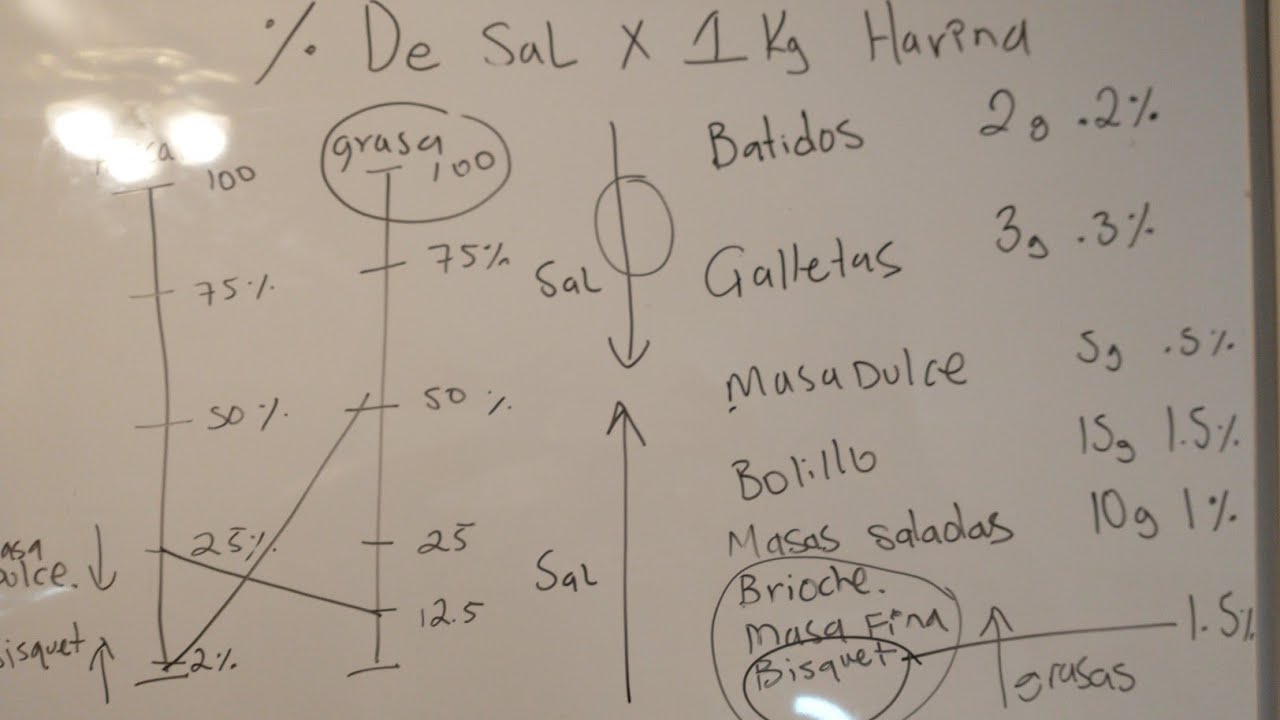 % De Sal x 1 Kg Harina
100
75%
50%
25%
2%
Bisquet
grasa
100
75%
50 %
25
12.5
Sal
Sal
Batidos 2g .2%
Galletas 3g .3%
Masa Dulce 5g .5%
Bolillo 15g 1.5%
Masas saladas 10g 1%
Brioche.
Masa Fina
Bisquet
1.5%
grasas